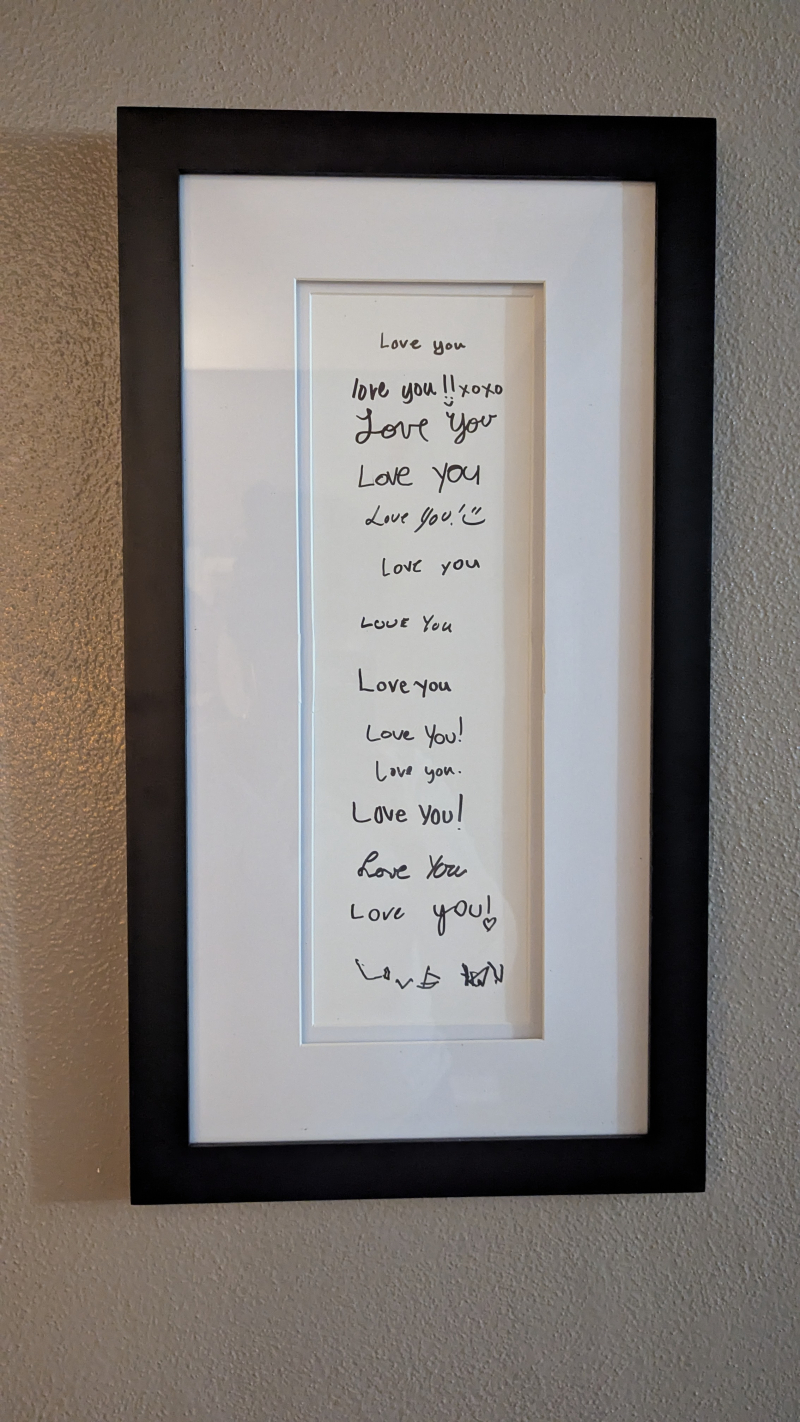 Love you
love you!! xoxo
Love You
Love you
Love You! :)
Love you
LOVE You
Love you
Love You!
Love you.
Love You!
Love You
Love you! ♡
Love